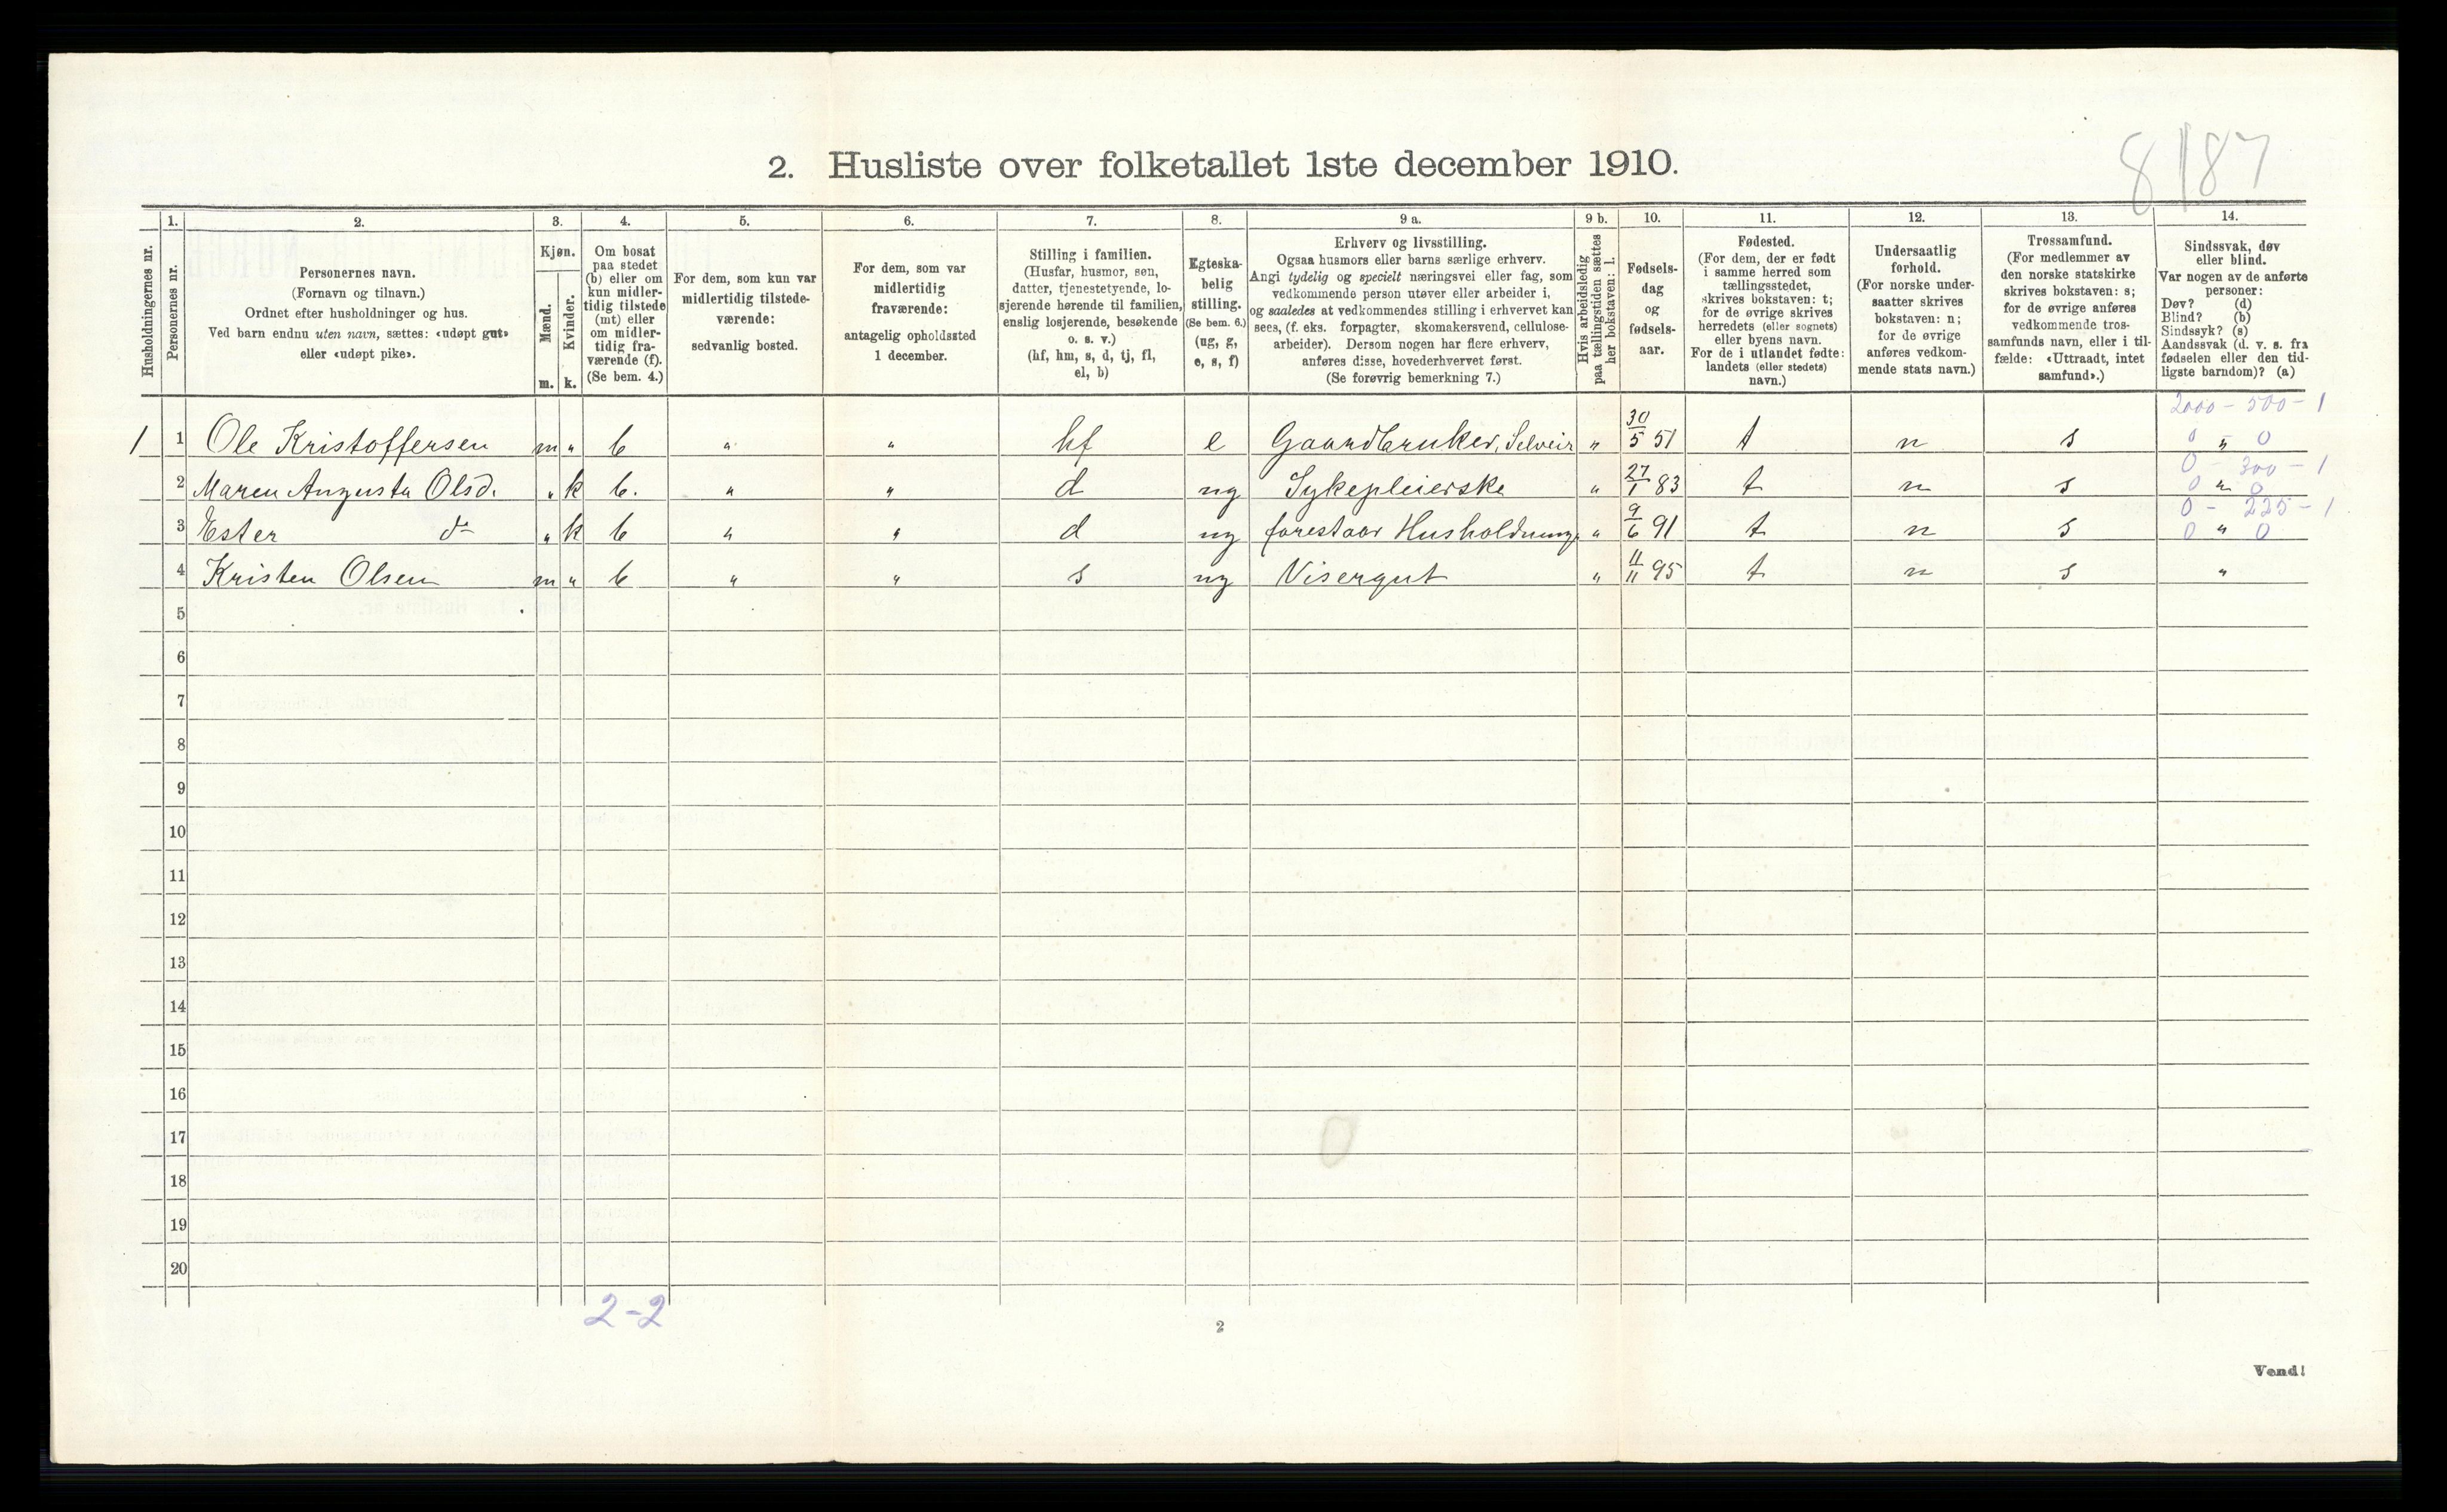 8 || 87
2. Husliste over folketallet 1ste december 1910.
Husholdningernes nr.
1.
Personernes nr.
2.
Personernes navn.
(Fornavn og tilnavn.)
Ordnet efter husholdninger og hus.
Ved barn endnu uten navn, sættes: «udøpt gut»
eller «udøpt pike».
3.
Kjøn.
Mænd.
Kvinder.
m. k.
4.
Om bosat
paa stedet
(b) eller om
kun midler-
tidig tilstede
(mt) eller
om midler-
tidig fra-
værende (f).
(Se bem. 4.)
5.
For dem, som kun var
midlertidig tilstede-
værende:
sedvanlig bosted.
6.
For dem, som var
midlertidig
fraværende:
antagelig opholdssted
1 december.
7.
Stilling i familien.
(Husfar, husmor, søn,
datter, tjenestetyende, lo-
sjerende hørende til familien,
enslig losjerende, besøkende
o. s. v.)
(hf, hm, s, d, tj, fl,
el, b)
8.
Egteska-
belig
stilling.
(Se bem. 6.)
(ug, g,
e, s, f)
9 a.
Erhverv og livsstilling.
Ogsaa husmors eller barns særlige erhverv.
Angi tydelig og specielt næringsvei eller fag, som
vedkommende person utøver eller arbeider i,
og saaledes at vedkommendes stilling i erhvervet kan
sees, (f. eks. forpagter, skomakersvend, cellulose-
arbeider). Dersom nogen har flere erhverv,
anføres disse, hovederhvervet først.
(Se forøvrig bemerkning 7.)
9 b.
Hvis arbeidsledig
paa tællingstiden sættes
her bokstaven: l.
10.
Fødsels-
dag
og
fødsels-
aar.
11.
Fødested.
(For dem, der er født
i samme herred som
tællingsstedet,
skrives bokstaven: t;
for de øvrige skrives
herredets (eller sognets)
eller byens navn.
For de i utlandet fødte:
landets (eller stedets)
navn.)
12.
Undersaatlig
forhold.
(For norske under-
saatter skrives
bokstaven: n;
for de øvrige
anføres vedkom-
mende stats navn.)
13.
Trossamfund.
(For medlemmer av
den norske statskirke
skrives bokstaven: s;
for de øvrige anføres
vedkommende tros-
samfunds navn, eller i til-
fælde: «Uttraadt, intet
samfund».)
14.
Sindssvak, døv
eller blind.
Var nogen av de anførte
personer:
Døv? (d)
Blind? (b)
Sindssyk? (s)
Aandssvak (d. v. s. fra
fødselen eller den tid-
ligste barndom)? (a)
2000 - 500 - 1
1 1 Ole Kristoffersen m " b " " hf e Gaardbruker, Selveir " 30/5 51 t n s 0 " 0
0 - 300 - 1
2 Maren Augusta Olsd. " k b. " " d ug Sykepleierske " 27/1 83 t n s 0 " 0
0 - 225 - 1
3 Ester do " k b " " d ug forestaar Husholdning. " 9/6 91 t n s 0 " 0
4 Kristen Olsen m " b " " s ug Visergut " 11/11 95 t n s "
5
6
7
8
9
10
11
12
13
14
15
16
17
18
19
20
2-2
2
Vend!